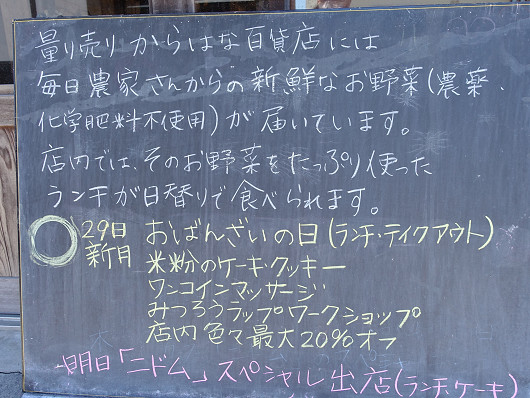 量り売り からはな百貨店には
毎日農家さんからの新鮮なお野菜(農薬、
化学肥料不使用)が届いています。
店内では、そのお野菜をたっぷり使った
ランチが日替りで食べられます。
29日 おばんざいの日(ランチ・テイクアウト)
新月 米粉のケーキ・クッキー
ワンコインマッサージ
みつろうラップワークショップ
店内色々最大20%オフ
明日「ニドム」スペシャル出店(ランチ・ケーキ)